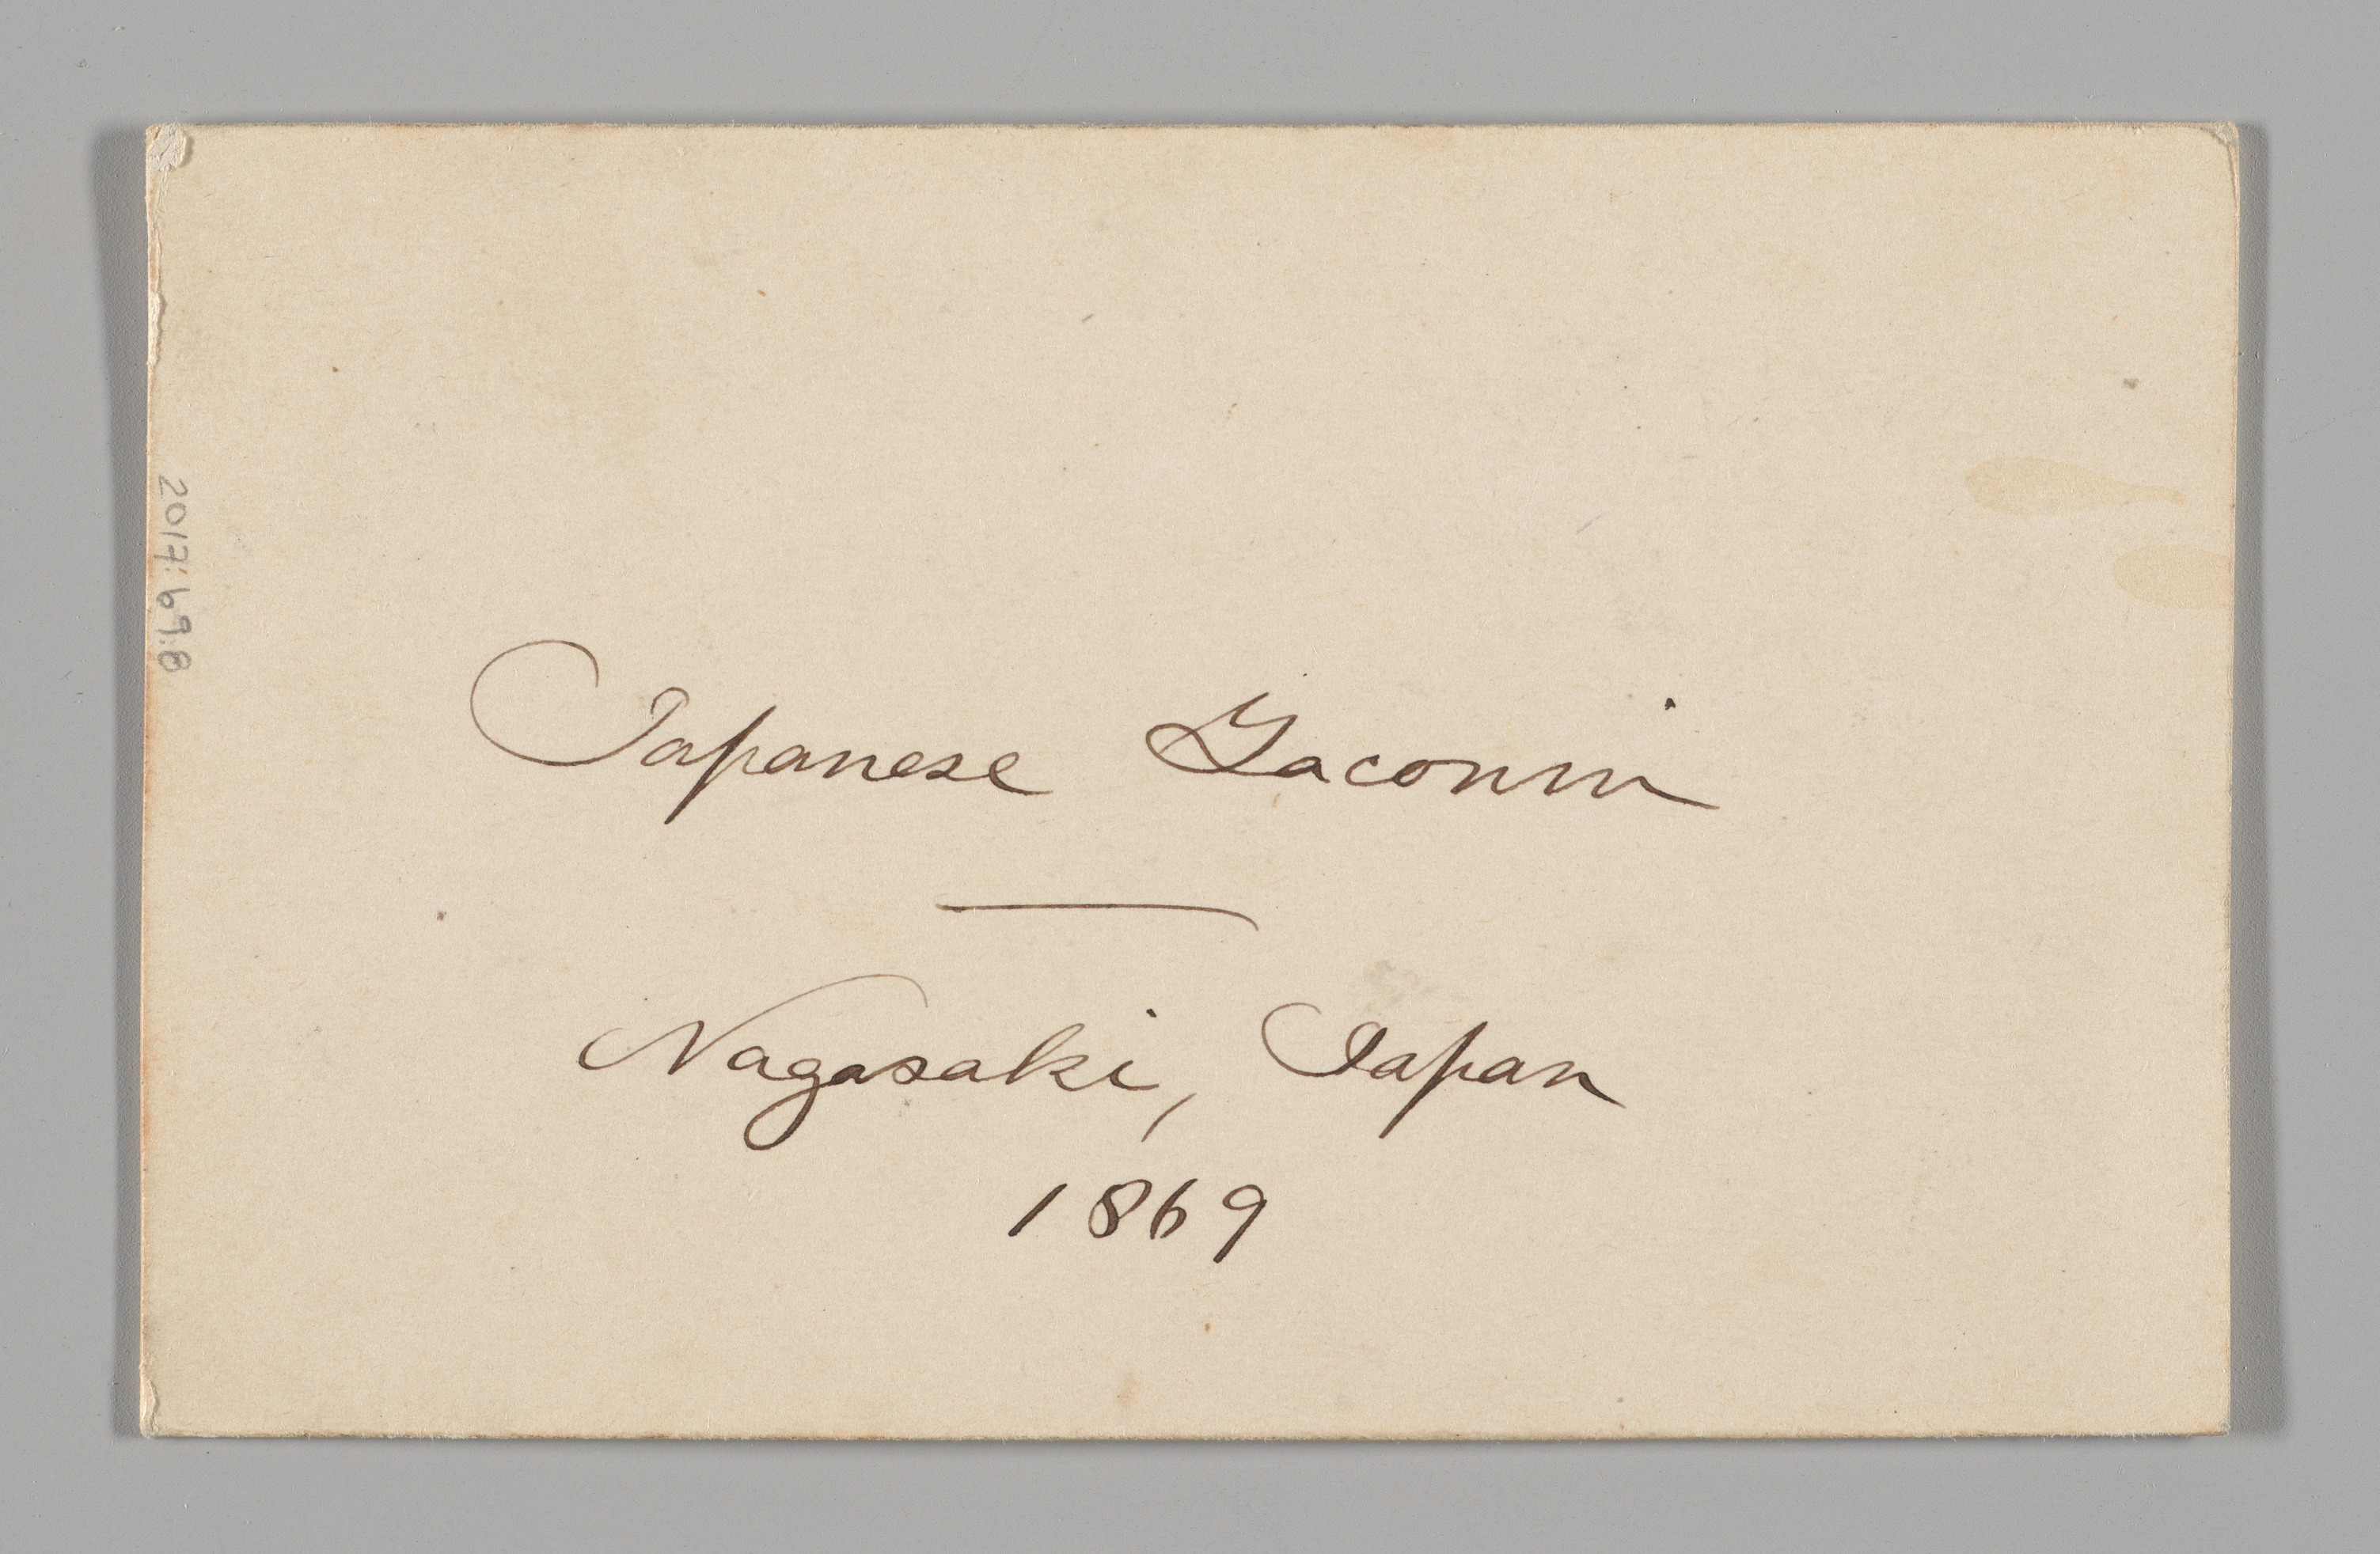 Japanese Yaconin
Nagasaki, Japan
1869
2017:69.8